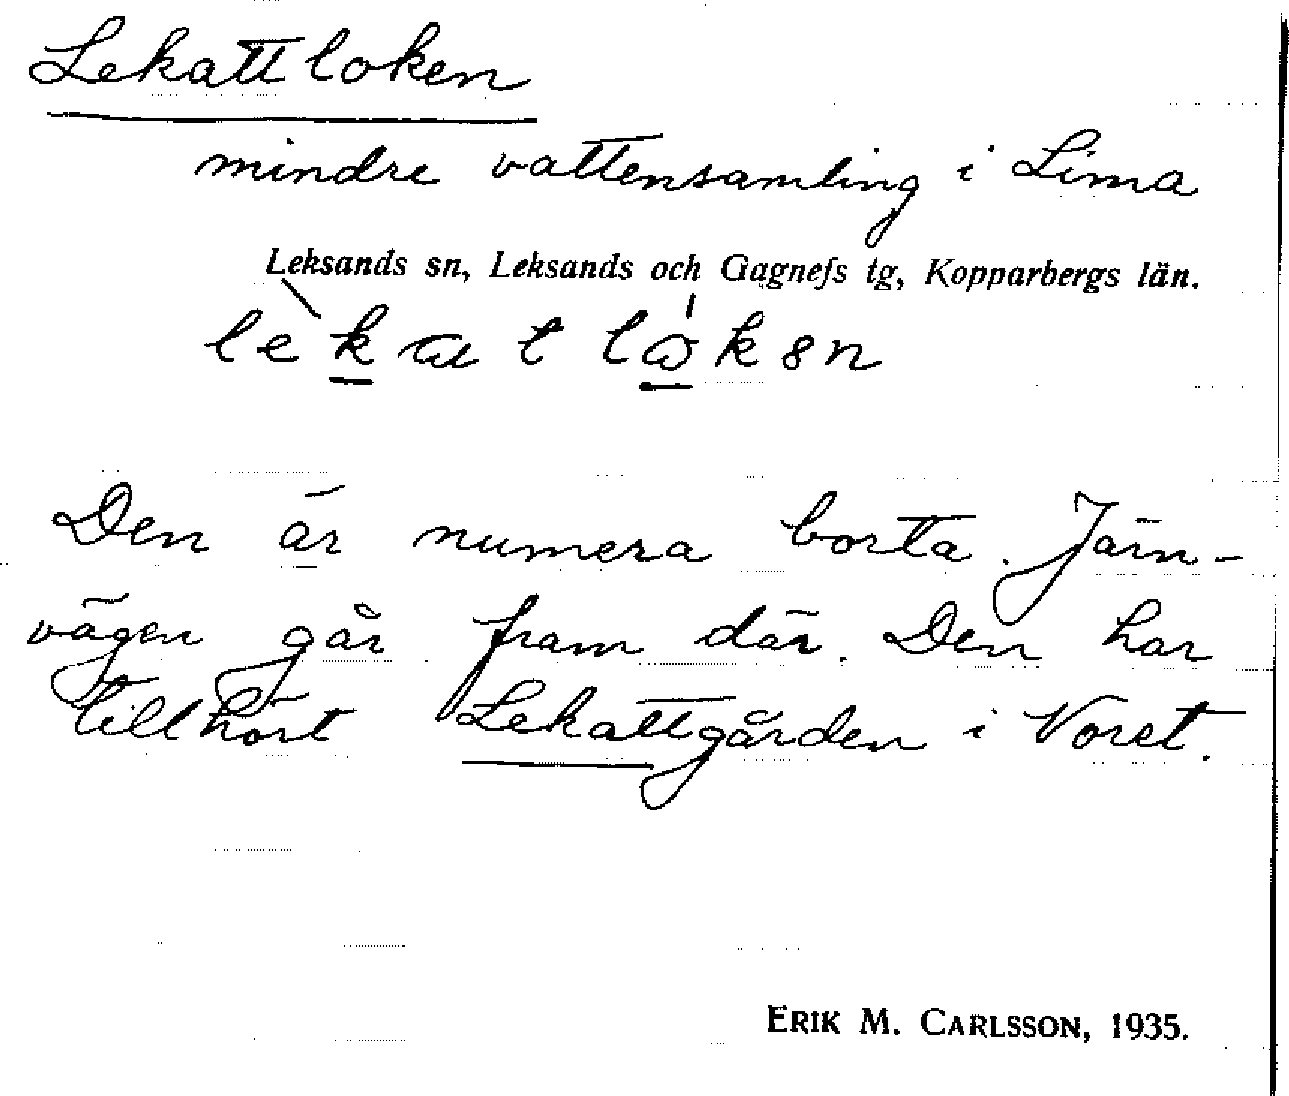 Lekattloken
mindre vattensamling i Lima
Leksands sn, Leksands och Gagnefs tg, Kopparbergs län.
Den är numera borta. Järn-
vägen går fram där. Den har
tillhört Lekattgården i Noret.
ERIK M. CARLSSON, 1935.